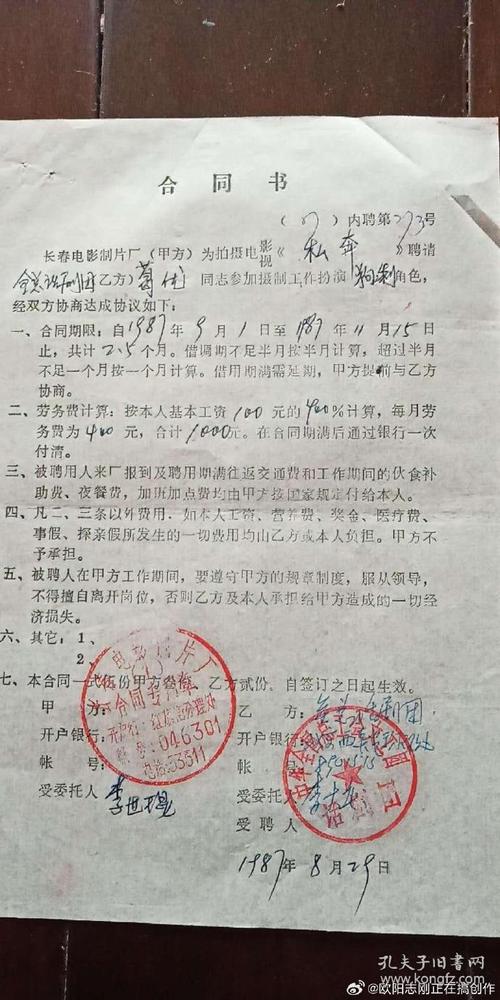 合同书
(87)内聘第273号
长春电影制片厂(甲方)为拍摄电影视《私奔》聘请
全总话剧团乙方)葛优同志参加摄制工作扮演 角色,
经双方协商达成协议如下:
一、合同期限:自1987年9月1日至1987年11月15日
止,共计2.5个月。借调期不足半月按半月计算,超过半月
不足一个月按一个月计算。借用期满需延期,甲方提前与乙方
协商。
二、劳务费计算:按本人基本工资100元的400%计算,每月劳
务费为400元,合计1000元。在合同期满后通过银行一次
付清。
三、被聘用人来厂报到及聘用期满往返交通费和工作期间的伙食补
助费、夜餐费,加班加点费均由甲方按国家规定付给本人。
四、凡二、三条以外费用,如本人工资、营养费、奖金、医疗费、
事假、探亲假所发生的一切费用均由乙方或本人负担。甲方不
予承担。
五、被聘人在甲方工作期间,要遵守甲方的规章制度,服从领导,
不得擅自离开岗位,否则乙方及本人承担给甲方造成的一切经
济损失。
六、其它:1、
2、
七、本合同一式伍份甲方叁份,乙方贰份,自签订之日起生效。
甲方:
乙方:全总话剧团
开户银行:
开户银行:
帐号:
帐号:
受委托人
受委托人
受聘人
1987年8月29日
电影制片厂
合同专用章
开户行:红旗街分理处
帐号:046301
电话:53311
话剧团
孔夫子旧书网
@欧阳志刚正在搞创作